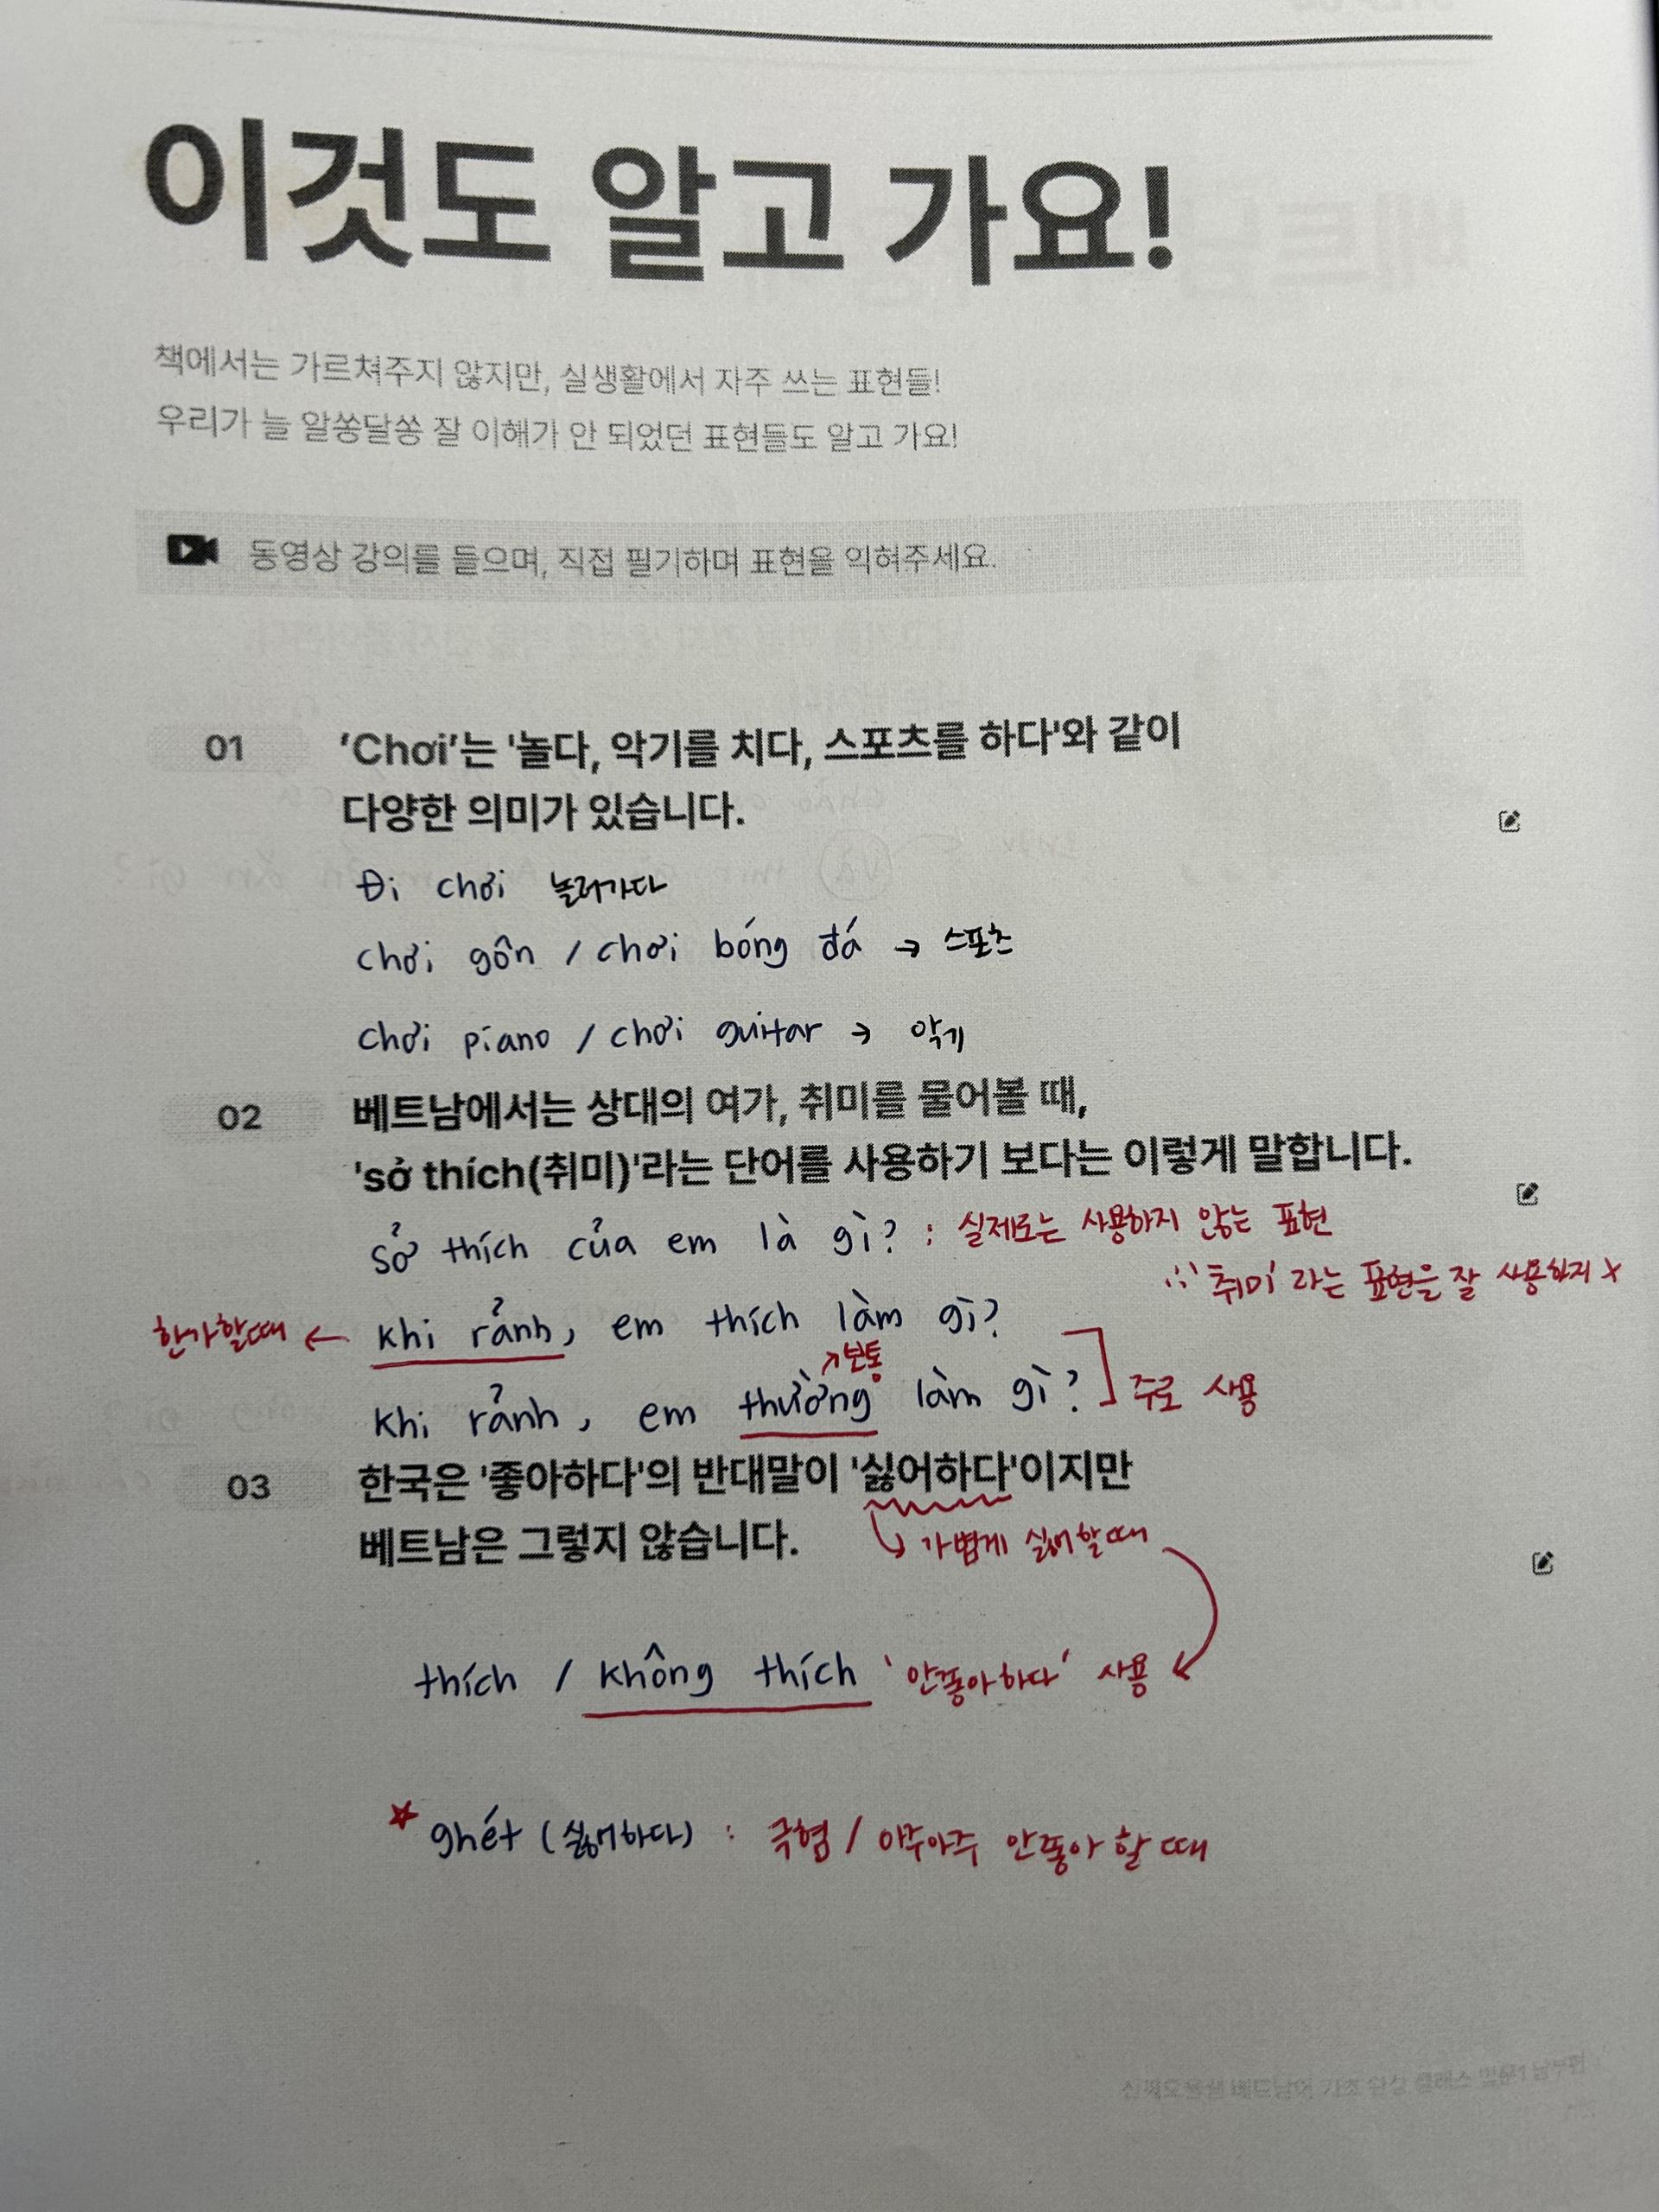 이것도 알고 가요!
책에서는 가르쳐주지 않지만, 실생활에서 자주 쓰는 표현들!
우리가 늘 알쏭달쏭 잘 이해가 안 되었던 표현들도 알고 가요!
동영상 강의를 들으며, 직접 필기하며 표현을 익혀주세요.
01 'Chơi'는 '놀다, 악기를 치다, 스포츠를 하다'와 같이
다양한 의미가 있습니다.
Đi chơi 놀러가다
chơi gôn / chơi bóng đá → 스포츠
chơi piano / chơi guitar → 악기
02 베트남에서는 상대의 여가, 취미를 물어볼 때,
'sở thích(취미)'라는 단어를 사용하기 보다는 이렇게 말합니다.
sở thích của em là gì? : 실제로는 사용하지 않는 표현
∵ '취미' 라는 표현을 잘 사용하지 x
한가할때 ← khi rảnh, em thích làm gì?
↗보통
khi rảnh, em thường làm gì? 주로 사용
03 한국은 '좋아하다'의 반대말이 '싫어하다'이지만
베트남은 그렇지 않습니다. 가볍게 싫어할때
thích / không thích '안좋아하다' 사용
☆ ghét (싫어하다) : 극혐 / 아주아주 안좋아 할 때